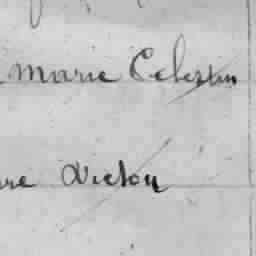 Marie Celestin
Victor